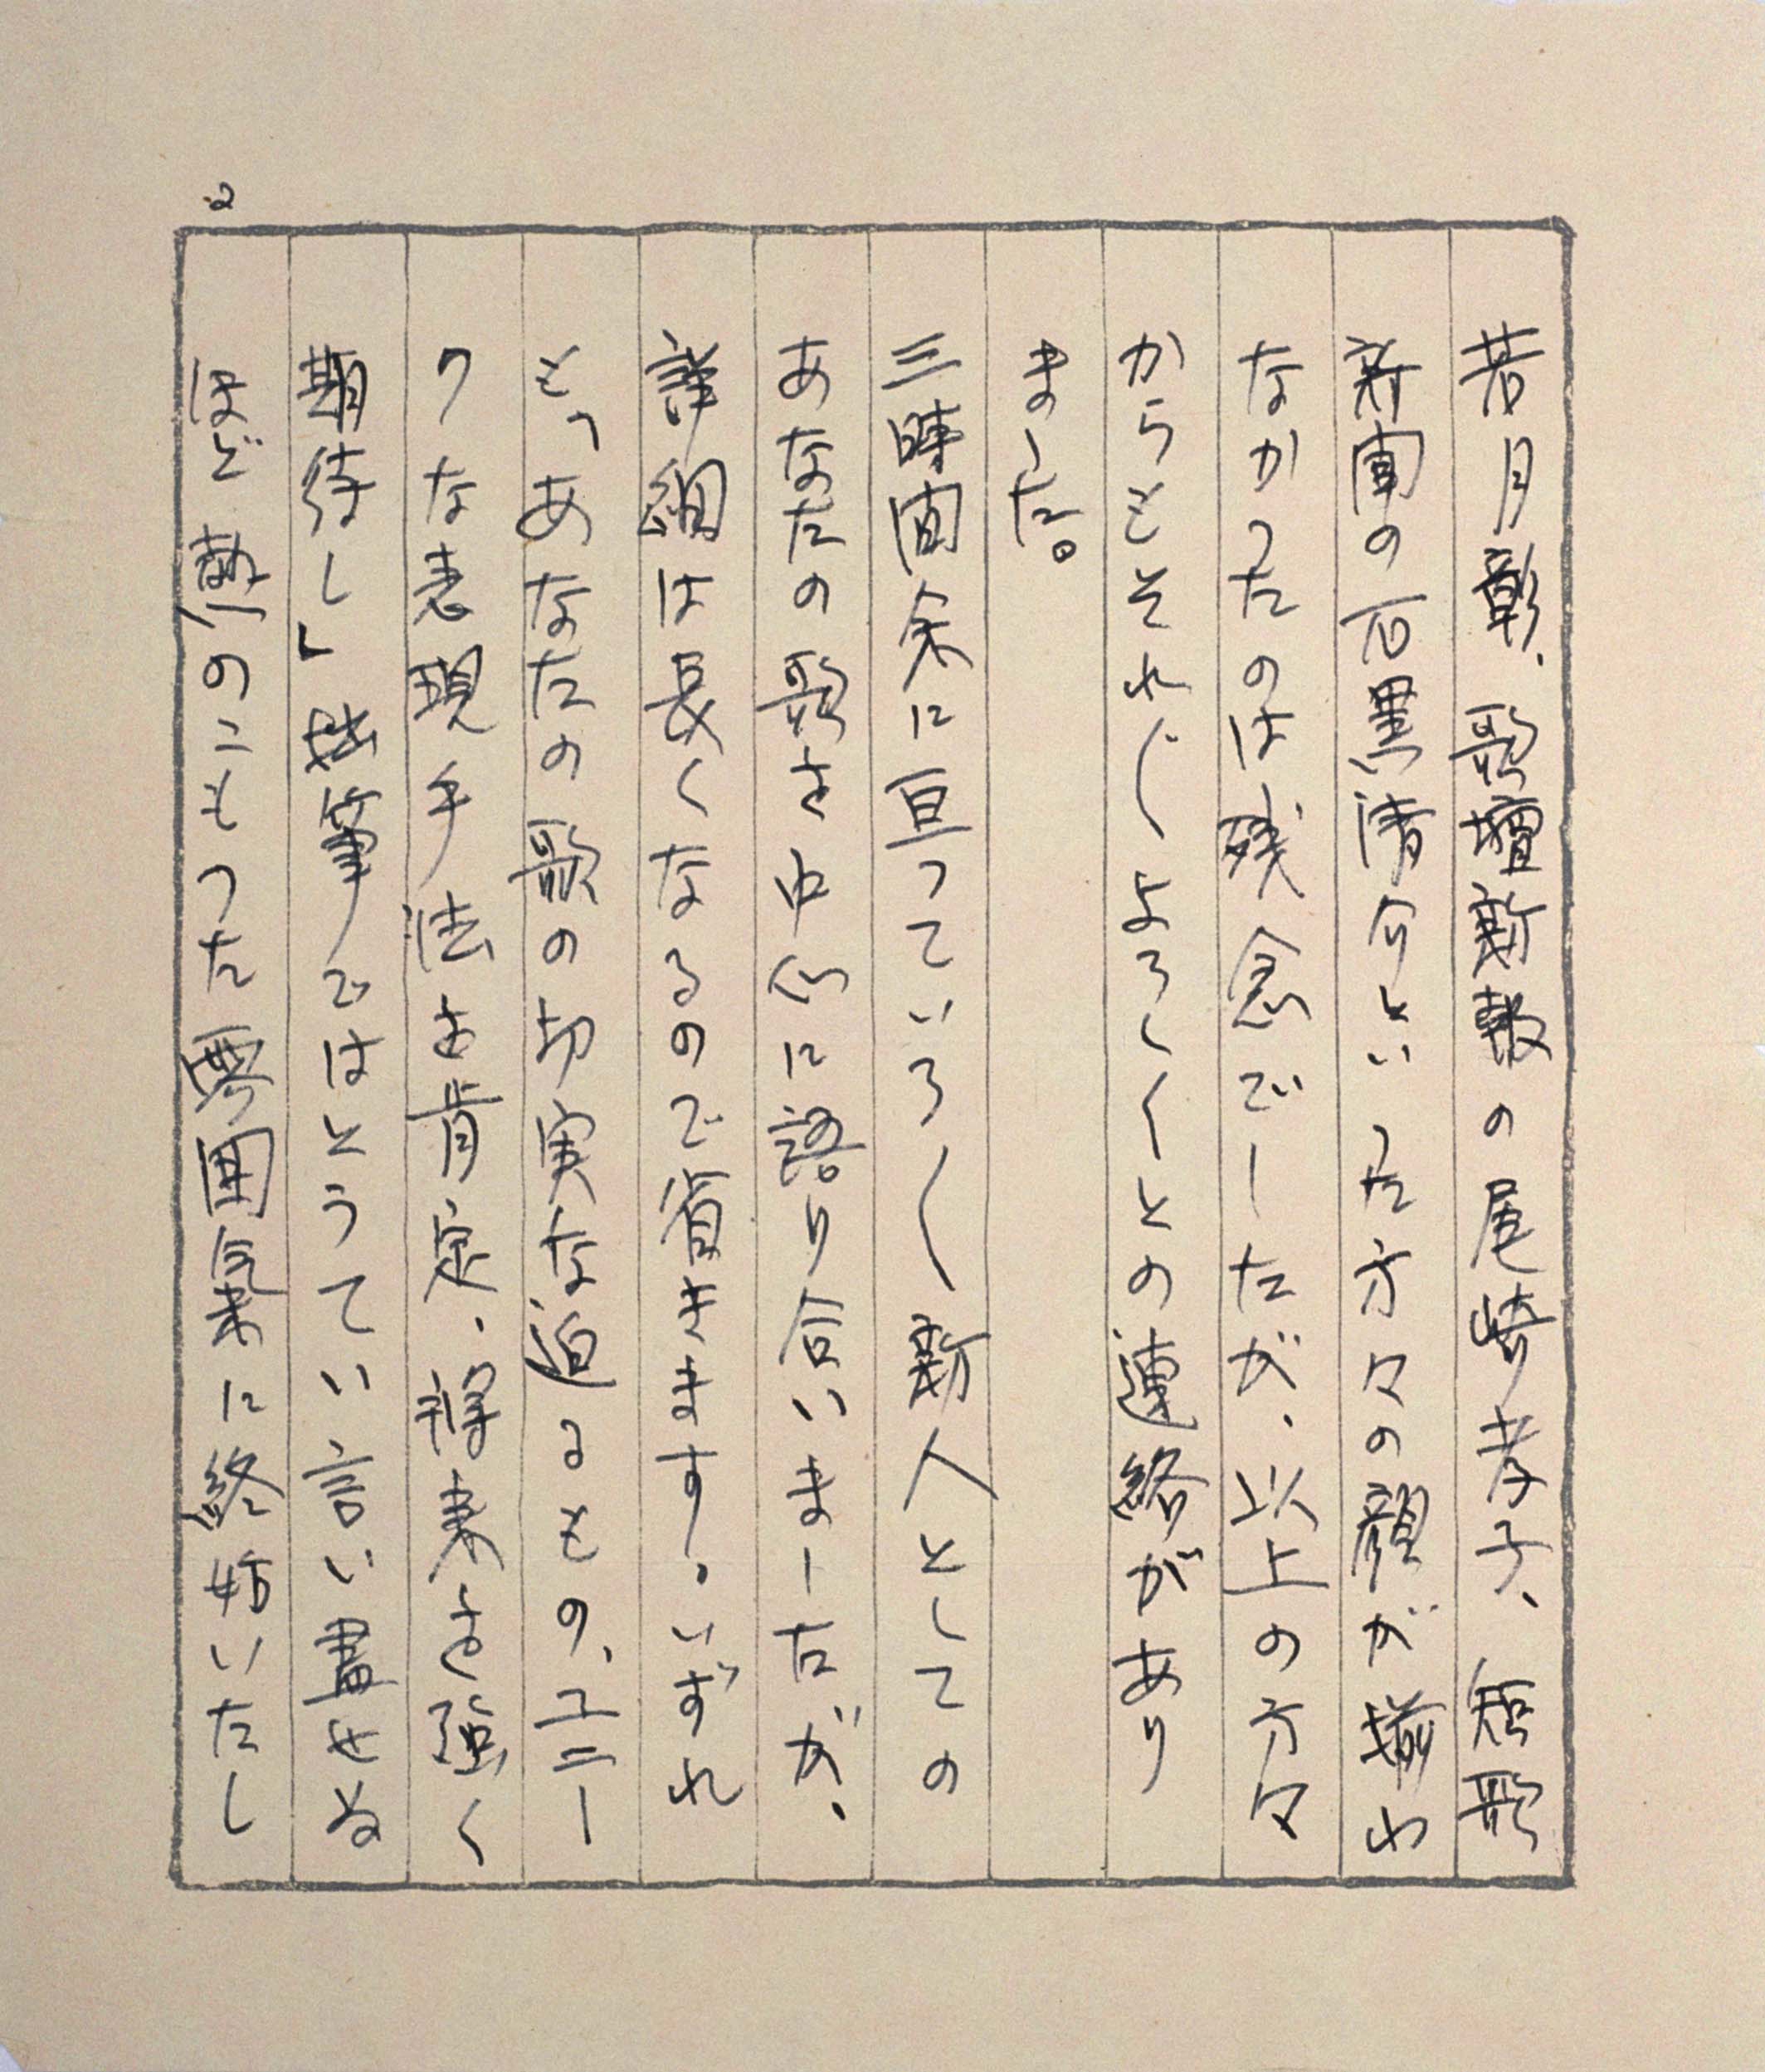 2
若月彰、歌壇新報の尾崎孝子、短歌
新聞の石黒清介といった方々の顔が揃わ
なかったのは残念でしたが、以上の方々
からもそれ〲よろしくとの連絡があり
ました。
三時間余に亘っていろ〱新人としての
あなたの歌を中心に語り合いましたが、
詳細は長くなるので省きます。いずれ
も「あなたの歌の切実な迫るもの、ユニー
クな表現手法を肯定、将来を強く
期待し」拙筆ではとうてい言い尽せぬ
ほど熱のこもった雰囲氣に終始いたし